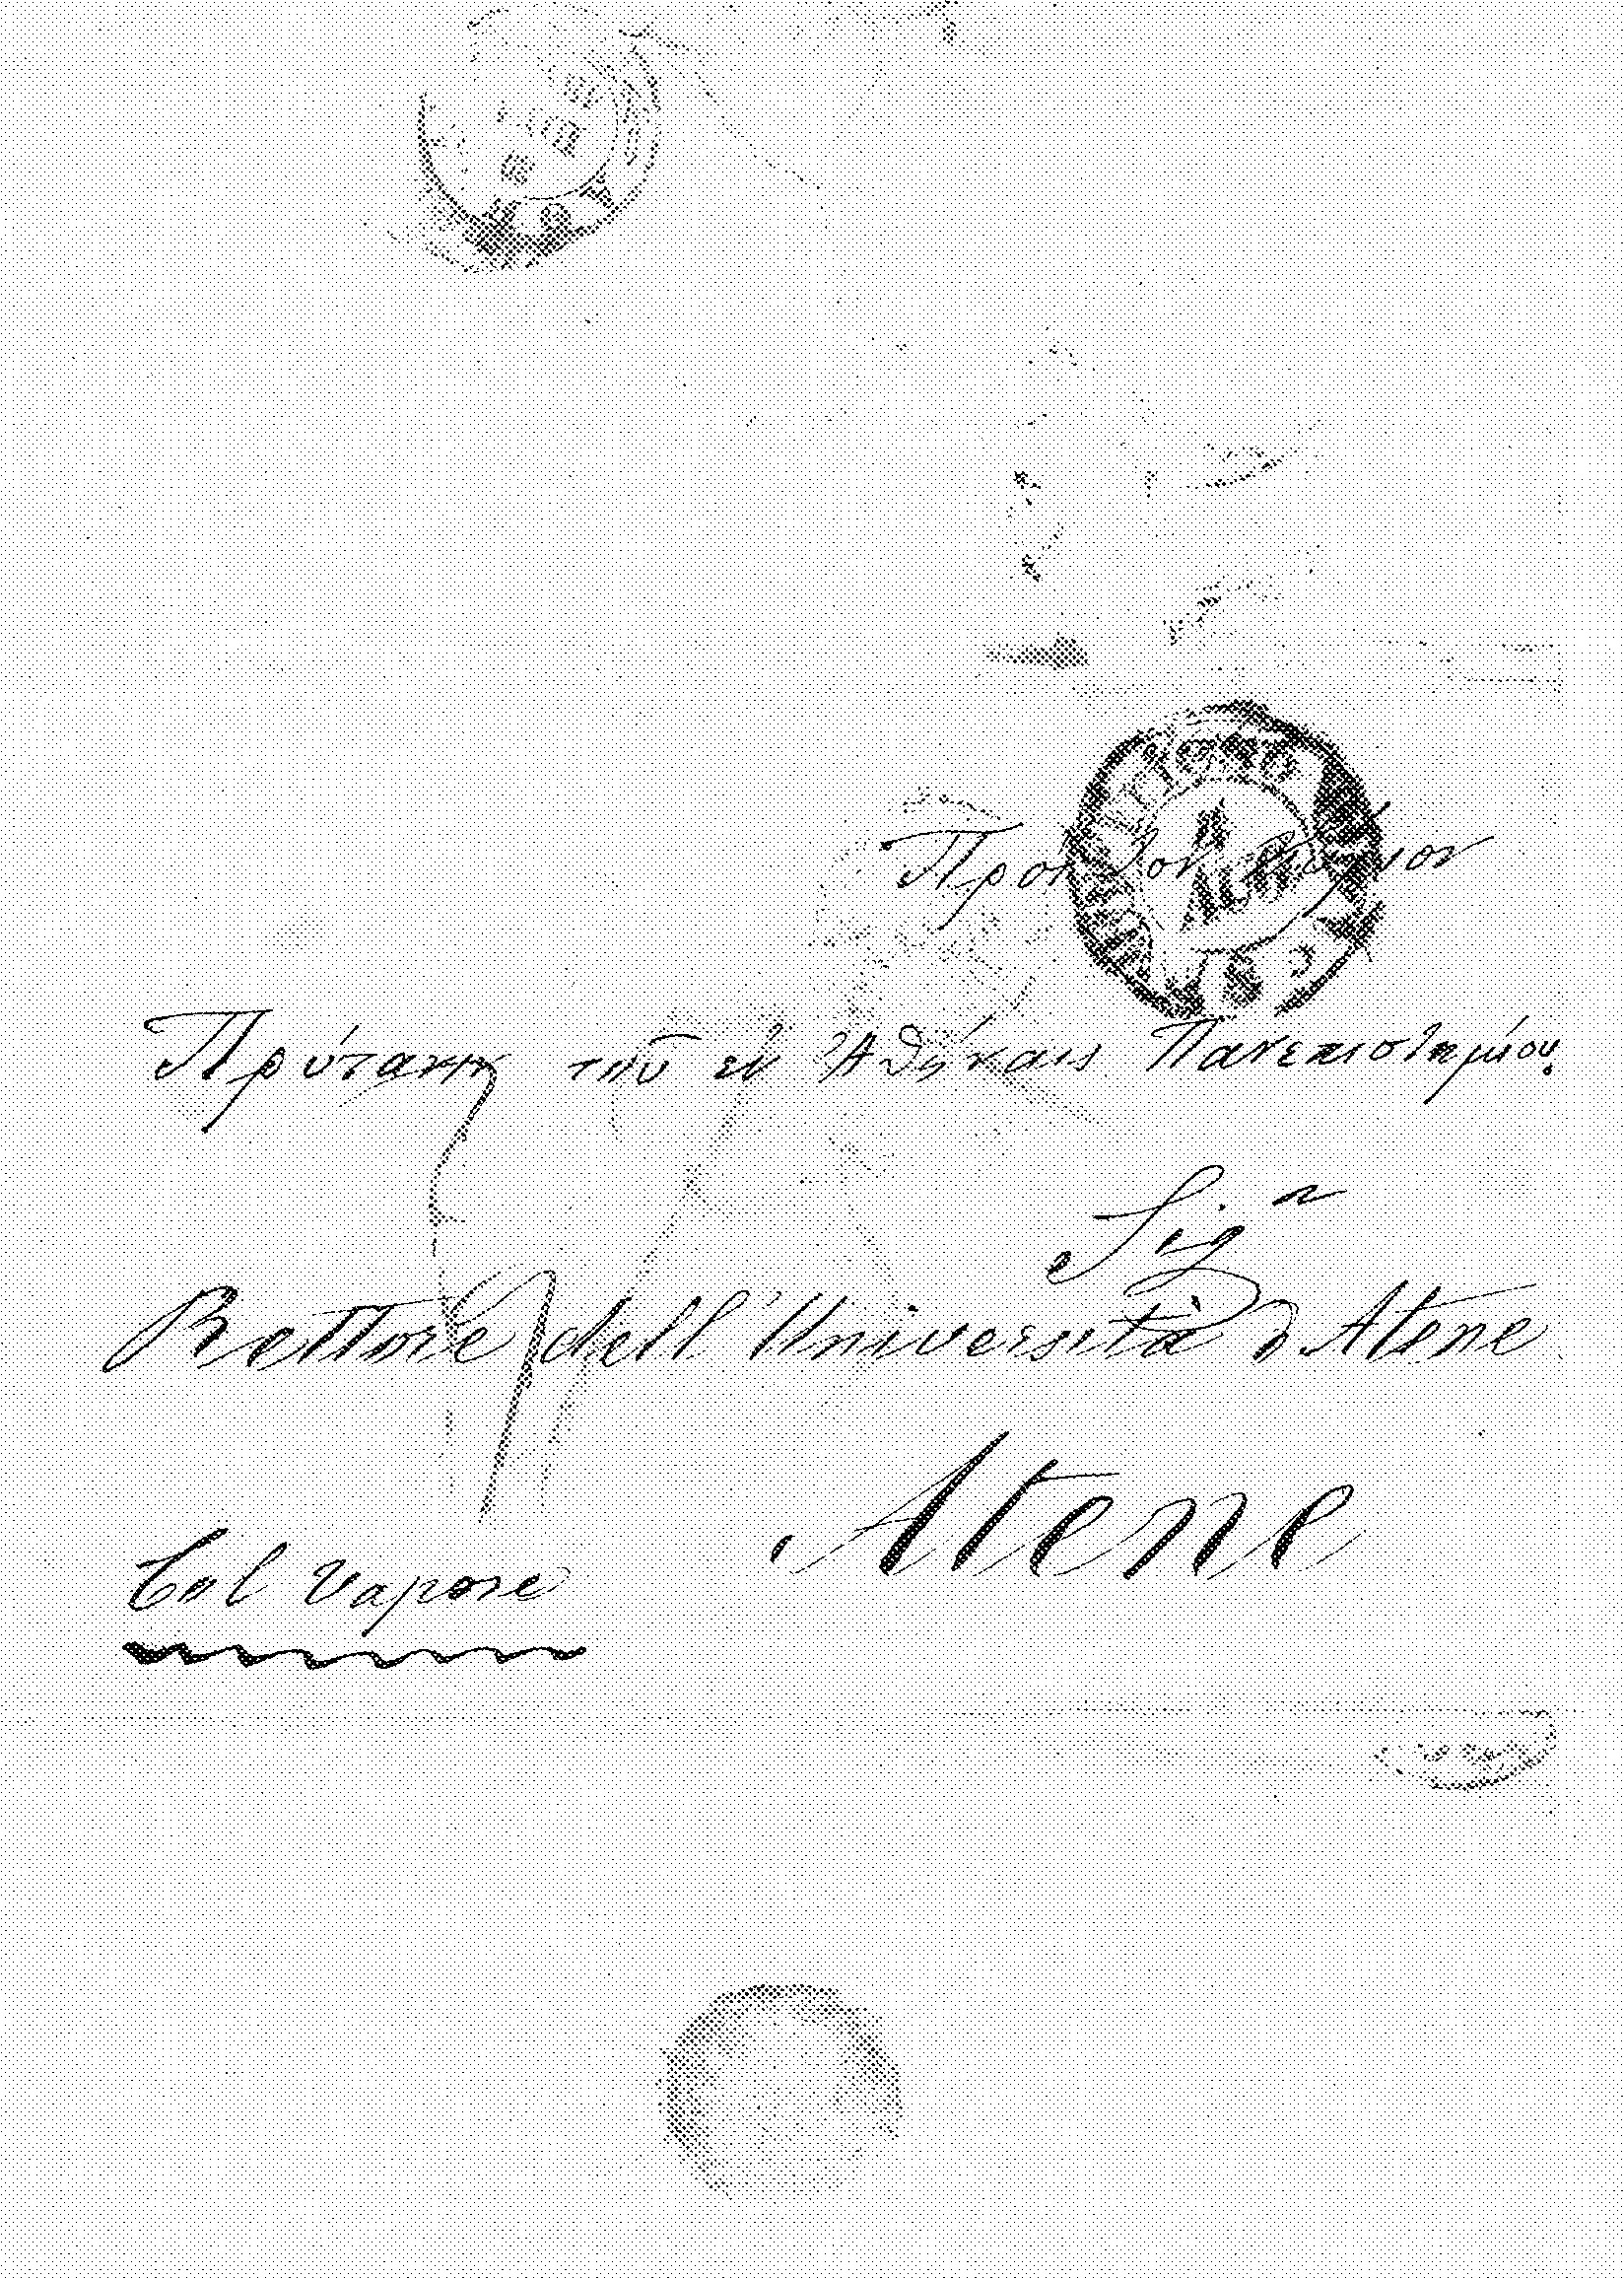 Προς τον Κύριον
Πρύτανην τοῦ ἐν Ἀθήναις Πανεπιστημίου
Sig.r
Rettore dell'Università d'Atene
Atene
Col Vapore